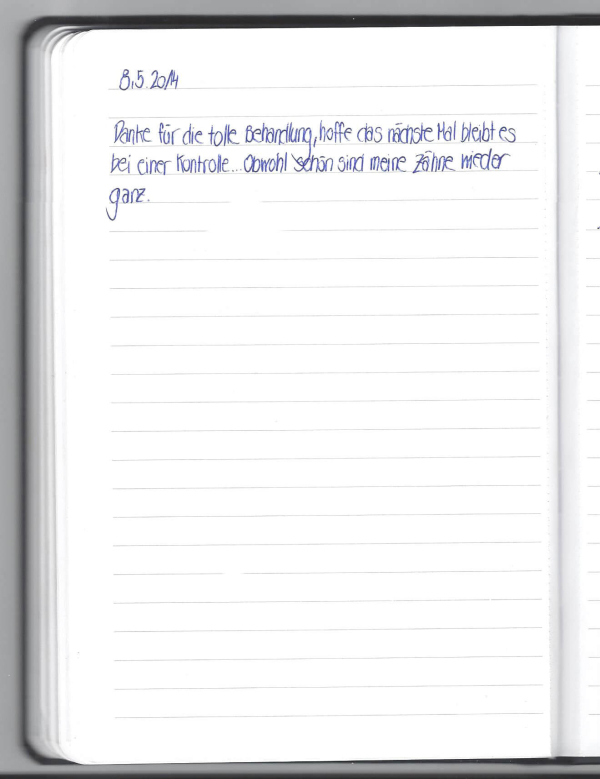 8.5.2014
Danke für die tolle Behandlung, hoffe das nächste Mal bleibt es
bei einer Kontrolle... Obwohl schön sind meine Zähne wieder
ganz.